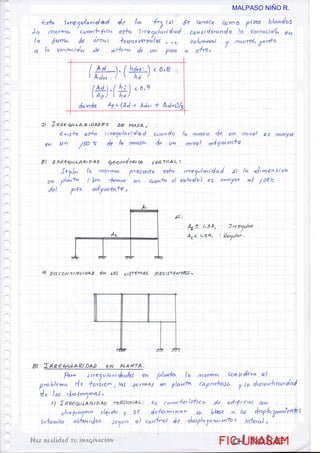 MALPASO NIÑO R.
Esta Irregularidad de la fig (2) se conoce como pisos blandos
la norma cuantifica esta irregularidad considerando la variación en
la forma de áreas transversales de columnas y muros, junto
a la variación de altura de un piso a otro.
(Ad / Adi+1) · (hdi+1 / hd) < 0.8 ó
(Ad / Ap) · (hi / hd) < 0.9
donde Ap =
2) IRREGULARIDADES DE MASA.
Existe esta irregularidad cuando la masa de un nivel es mayor
en un 150% de la masa de un nivel adyacente
3) IRREGULARIDAD GEOMÉTRICA VERTICAL:
Según la norma presenta esta irregularidad si la dimensión
en planta / sin tomar en cuenta el voladol es mayor al 130%
del piso adyacente.
A1
A2
si:
A2 ≥ 1.3A1 : Irregular
A2 < 1.3A1 : Regular.
4) DISCONTINUIDAD EN LOS SISTEMAS RESISTENTES.
B) IRREGULARIDAD EN PLANTA.
Para irregularidades en planta la norma considera el
problema de torsión, las formas en planta caprichosa y la discontinuidad
de los diafragmas.
1) IRREGULARIDAD TORSIONAL: Es característico de edificios con
diafragma rígido y se determinan en base a los desplazamientos
laterales obtenidos según el control de desplazamientos lateral.
Haz realidad tu imaginación
FIC-UNASAM